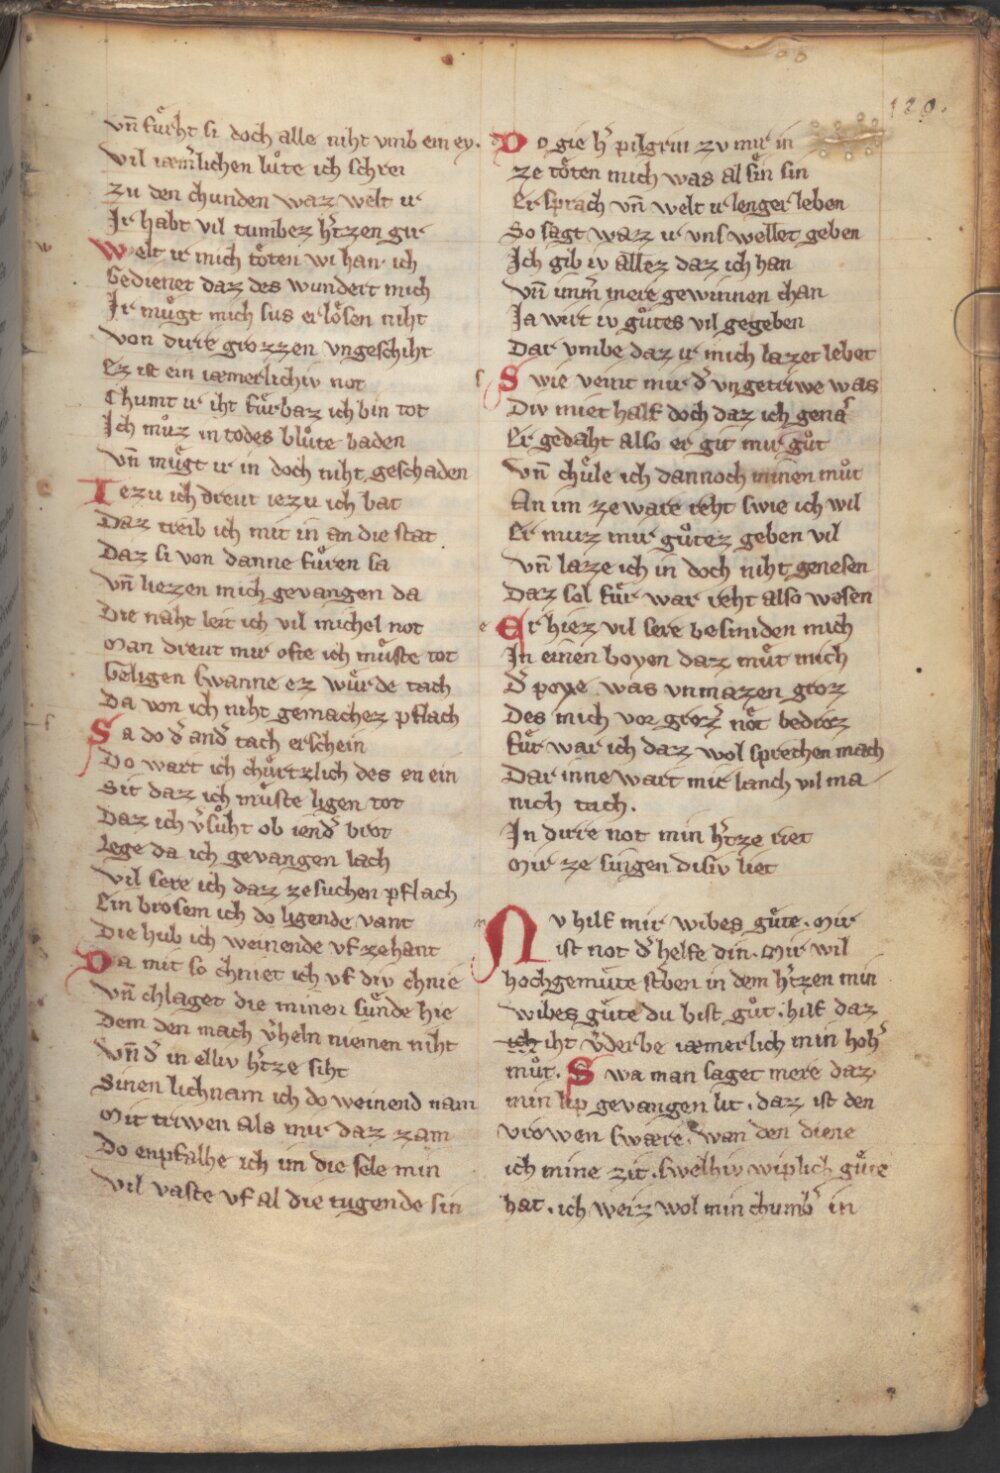 vn̄ fuͤrht si doch alle niht vmb ein ey.
vil iæm̄lichen luͦte ich schrei
zu den chunden waz welt ir
Ir habt vil tumbez h̓tzen gir
Welt ir mich toͤten wi han ich
Gedienet daz des wundert mich
Ir muͤgt mich sus erloͤsen niht
von dirre grozzen vngeschiht
Ez ist ein iæmerlichiv not
Chumt ir iht fuͤrbaz ich bin tot
Ich muͦz in todes bluͦte baden
vn̄ muͤgt ir in doch niht geschaden
Iezu ich dreut iezu ich bat
Daz treib ich mit in an die stat
Daz si von danne fuͦren sa
vn̄ liezen mich gevangen da
Die naht leit ich vil michel not
Man dreut mir ofte ich muͤste tot
Geligen swanne ez wuͤrde tach
Da von ich niht gemachez pflach
Sa do d̓ and̓ tach erschein
Do wart ich chuͤrtzlich des en ein
Sit daz ich muͤste ligen tot
Daz ich v̓suͦht ob iend̓ brot
Lege da ich gevangen lach
vil sere ich daz zesuchen pflach
Ein brosem ich do ligende vant
Die hub ich weinende vf zehant
Da mit so chniet ich vf div chnie
vn̄ chlaget die minen suͤnde hie
Dem den mach v̓heln niemen niht
vn̄ d̓ in elliv h̓tze siht
Sinen lichnam ich do weinend nam
Mit triwen als mir daz zam
Do enpfalhe ich im die sele min
vil vaste vf al die tugende sin
120.
Do gie h̓ pilgrim zv mir in
ze toͤten mich was al sin sin
Er sprach vn̄ welt ir lenger leben
So sagt waz ir vns wellet geben
Ich gib iv allez daz ich han
vn̄ im̄ mere gewinnen chan
Ja wirt iv guͦtes vil gegeben
Dar vmbe daz ir mich lazet leben
Swie veint mir d̓ vngetriwe was
Div miet half doch daz ich genas
Er gedaht also er git mir guͦt
vn̄ chuͤle ich dannoch minen muͦt
An im zeware reht swie ich wil
Er muz mir guͦtez geben vil
vn̄ laze ich in doch niht genesen
Daz sol fuͤr war reht also wesen
Er hiez vil sere besmiden mich
In einen boyen daz muͤt mich
d̓ poye was vnmazen groz
Des mich vor groz̓ not bedroz
fuͤr war ich daz wol sprechen mach
Dar inne wart mir lanch vil ma
nich tach.
In dirre not min h̓tze riet
Mir ze singen disiv liet
Nv hilf mir wibes guͤte. Mir
ist not d̓ helfe din. Mir wil
hochgemuͤte st̓ben in dem h̓tzen min
wibes guͤte du bist guͦt. hilf daz
ich iht v̓derbe iæmerlich min hoh̓
muͦt. Swa man saget mere daz
min lip gevangen lit. daz ist den
vrowen swære. wan den diene
ich mine zit. swelhiv wiplich guͤte
hat. ich weiz wol min chumb̓ in